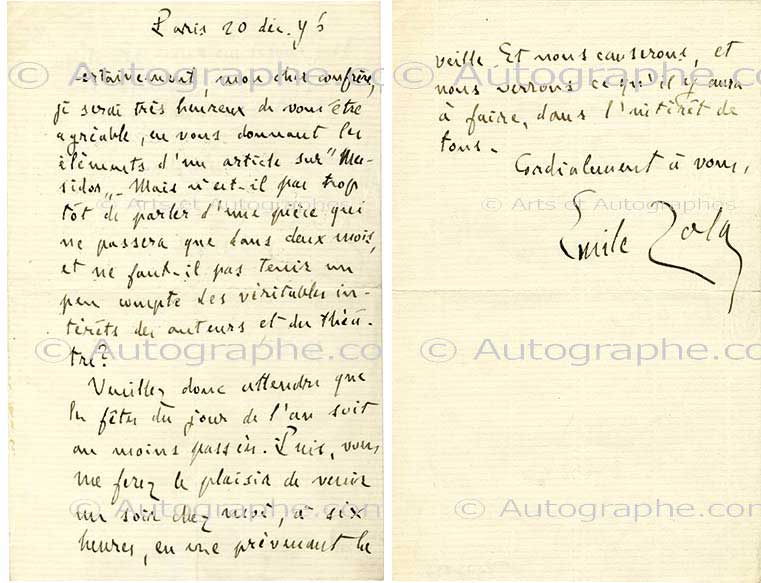 Paris 20 déc. 96
Certainement, mon cher confrère,
je serai très heureux de vous être
agréable, en vous donnant les
éléments d'un article sur "Mes-
sidor". Mais n'est-il pas trop
tôt de parler d'une pièce qui
ne passera que dans deux mois,
et ne faut-il pas tenir un
peu compte des véritables in-
térêts des auteurs et du théâ-
tre?
Veuillez donc attendre que
les fêtes du jour de l'an soit
au moins passées. Puis, vous
me ferez le plaisir de venir
un soir chez moi, à six
heures, en me prévenant la
veille. Et nous causerons, et
nous verrons ce qu'il y aura
à faire, dans l'intérêt de
tous.
Cordialement à vous,
Emile Zola
© Autographe.com
© Arts et Autographes
© Autographe.com
© Autographe.com
© Autographe.com
© Arts et Autographes
© Autographe.com
© Autographe.com